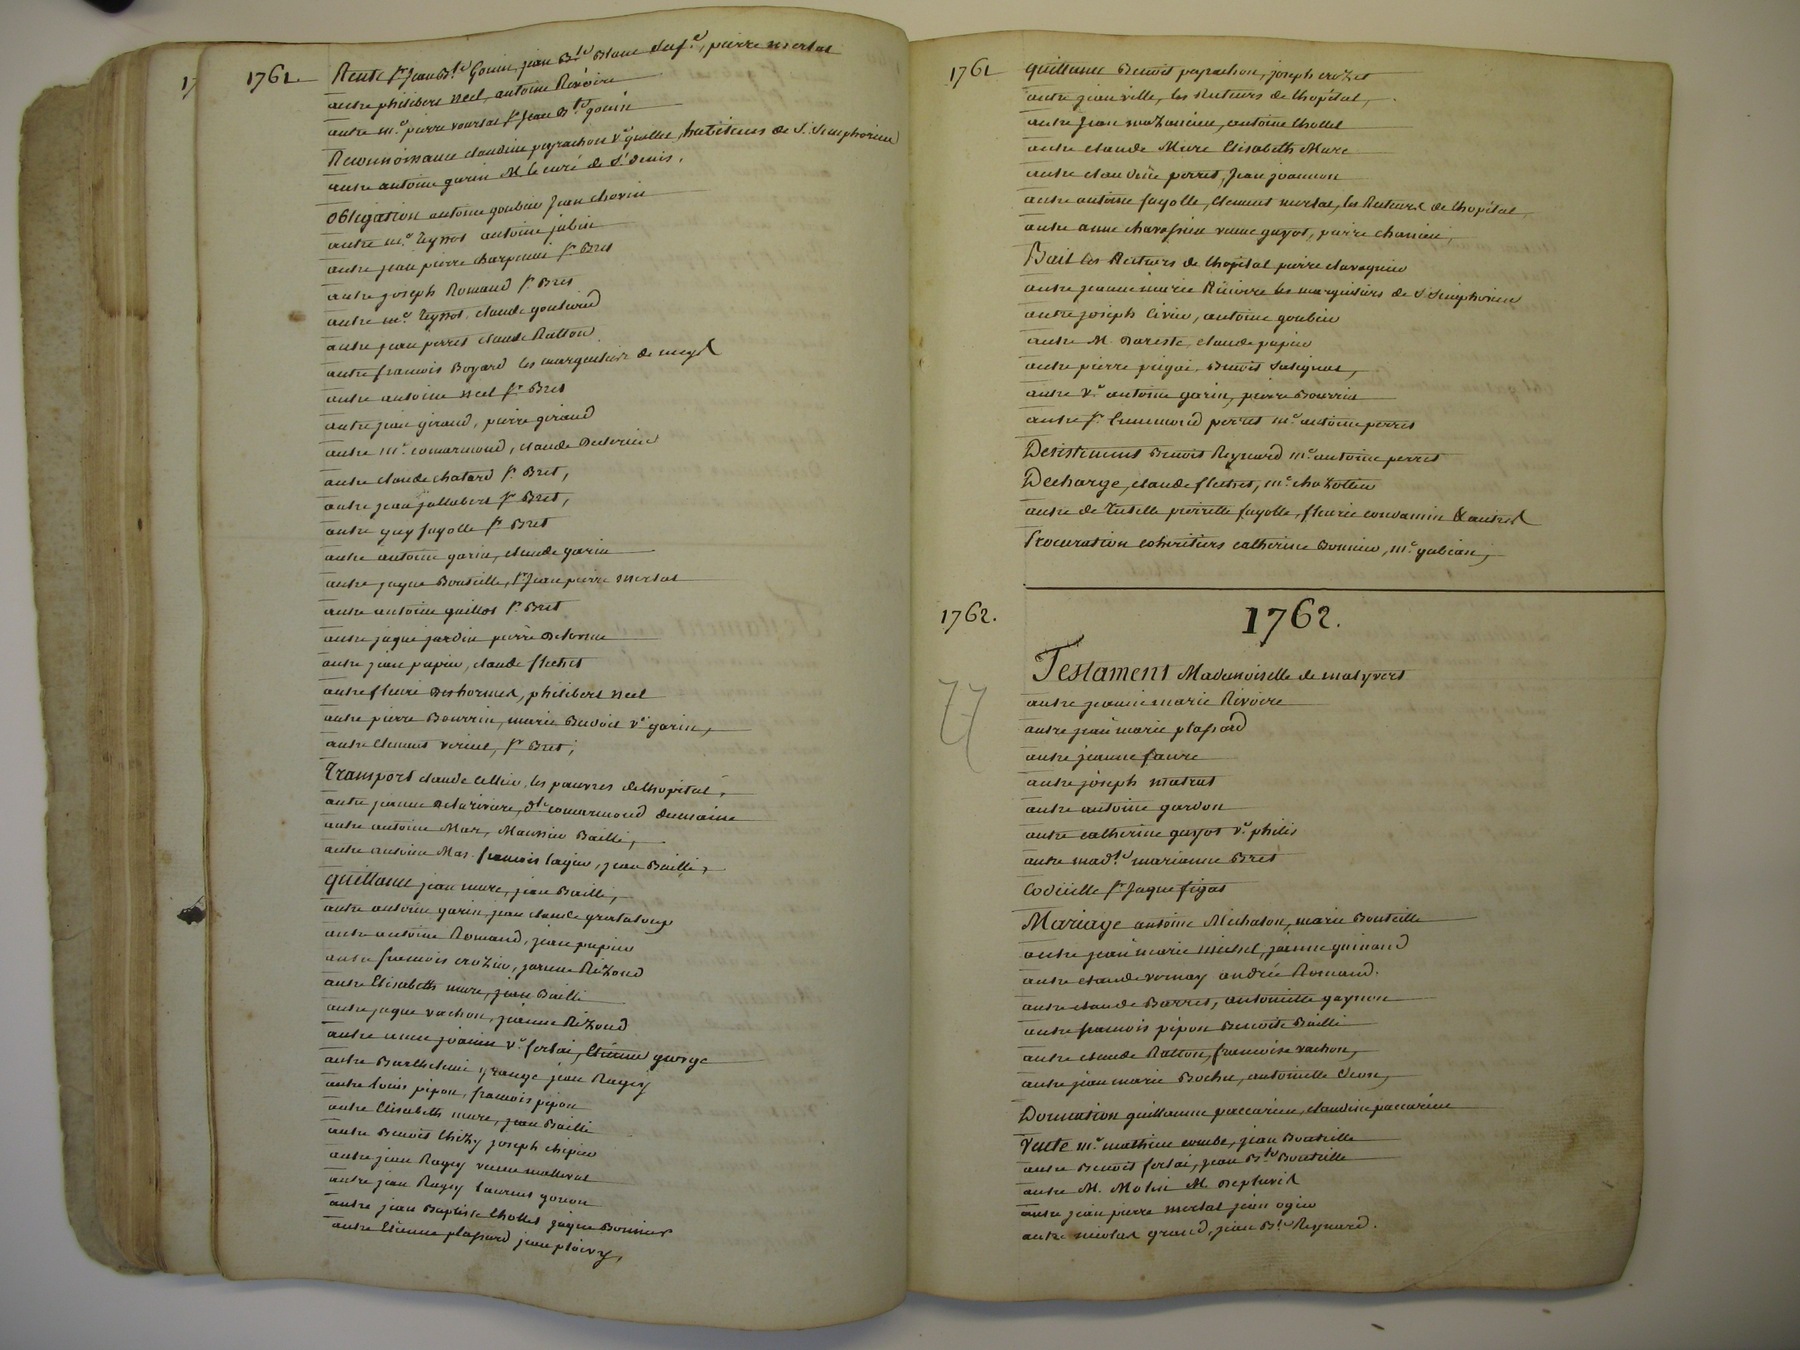 17
1761. Rente Sr Jean Bte gonin, jean Bte Blanc dufe, pierre mertat
autre philibert neel, antoine Rivoire
autre me pierre voursat Sr Jean Bte gonin
Reconnoissance claudine peyrachon ve guillot, habitans de St Simphorien
autre antoine garin M le curé de St denis.
obligation antoine goubin Jean chovin
autre me Reynot antoine jubin
autre jean pierre charpenai Sr Bret
autre joseph Romand Sr Bret
autre me Reynot, claude
autre jean perret claude Ratton
autre francois Boyard les marguiliers de meys
autre antoine neel Sr Bret
autre jean giraud, pierre giraud
autre me comarmond, claude
autre claude chatard Sr Bret,
autre jean jallabert Sr Bret,
autre guy fayolle Sr Bret
autre antoine garin, claude garin
autre jaque Bouteille, Sr Jean pierre mertat
autre antoine guillot Sr Bret
autre jaque jardin pierre delorme
autre jean papin, claude flechet
autre fleurie deshormes, philibert neel
autre pierre Bourrin, marie Benoit ve garin,
autre clement Sr Bret,
Transport claude les pauvres de lhopital,
autre jeanne delariviere, dlle comarmond
autre antoine Mas, Maurice Bailli,
autre antoine Mas francois jean Bailli,
quittance jean mure, jean Bailli,
autre antoine garin jean claude grataloup
autre antoine Romand, jean papin
autre francois crozin, jeanne Rizoud
autre Elisabeth mure, jean Bailli
autre jaque vachon, jeanne Rizoud
autre anne joanin ve fertai, Etienne george
autre Barthelemi grange jean Ragey
autre louis pipon, francois pipon
autre Elisabeth mure, jean Bailli
autre Benoit joseph chipier
autre jean Ragey
autre jean Ragey laurent gonon
autre jean Baptiste chollet jaque Bonnier
autre Etienne plassard jean ploivy,
1761 quittance Benoit peyrachon, joseph crozet
autre jean ville, les Recteurs de lhopital,
autre Jean mazancieu, antoine chollet
autre claude Mure Elisabeth Mure
autre claudine perret, Jean joannon
autre antoine fayolle, clement mertat, les Recteurs de lhopital
autre anne veuve guyot, pierre
Bail les Recteurs de lhopital pierre clavagnier
autre jeanne marie Rivoire les marguiliers de St Simphorien
autre joseph antoine goubin
autre M. Dareste, claude papin
autre pierre Benoit
autre ve antoine garin, pierre Bourrin
autre Sr Ennemond perret me antoine perret
Desistement Benoit Reynard me antoine perret
Decharge, claude flechet, me chazottier
autre de tutelle pierrette fayolle, fleurie condamin & autres
Procuration coheritiers catherine Bonnier, me gubian,
1762. 1762.
77
Testament Mademoiselle de matyvert
autre jeanne marie Rivoire
autre jean marie plassard
autre jeanne faure
autre joseph matrat
autre antoine gardon
autre catherine guyot ve philis
autre madlle marianne Bret
Codicille Sr Jaque figat
Mariage antoine Michalon, marie Bouteille
autre jean marie michel, jeanne guinand
autre claude vernay andrée Romand.
autre claude Barret, antoinette gaynon
autre francois pipon Benoite Bailli
autre claude Ratton, francoise vachon,
autre jean marie Bochu, antoinette
Donnation guillaume paccarin, claudine paccarin
Vente me mathieu combe, jean Bouteille
autre Benoit fertai, jean Bte Bouteille
autre M. Molin M.
autre jean pierre mertat jean ogier
autre nicolas grand, jean Bte Reynard.